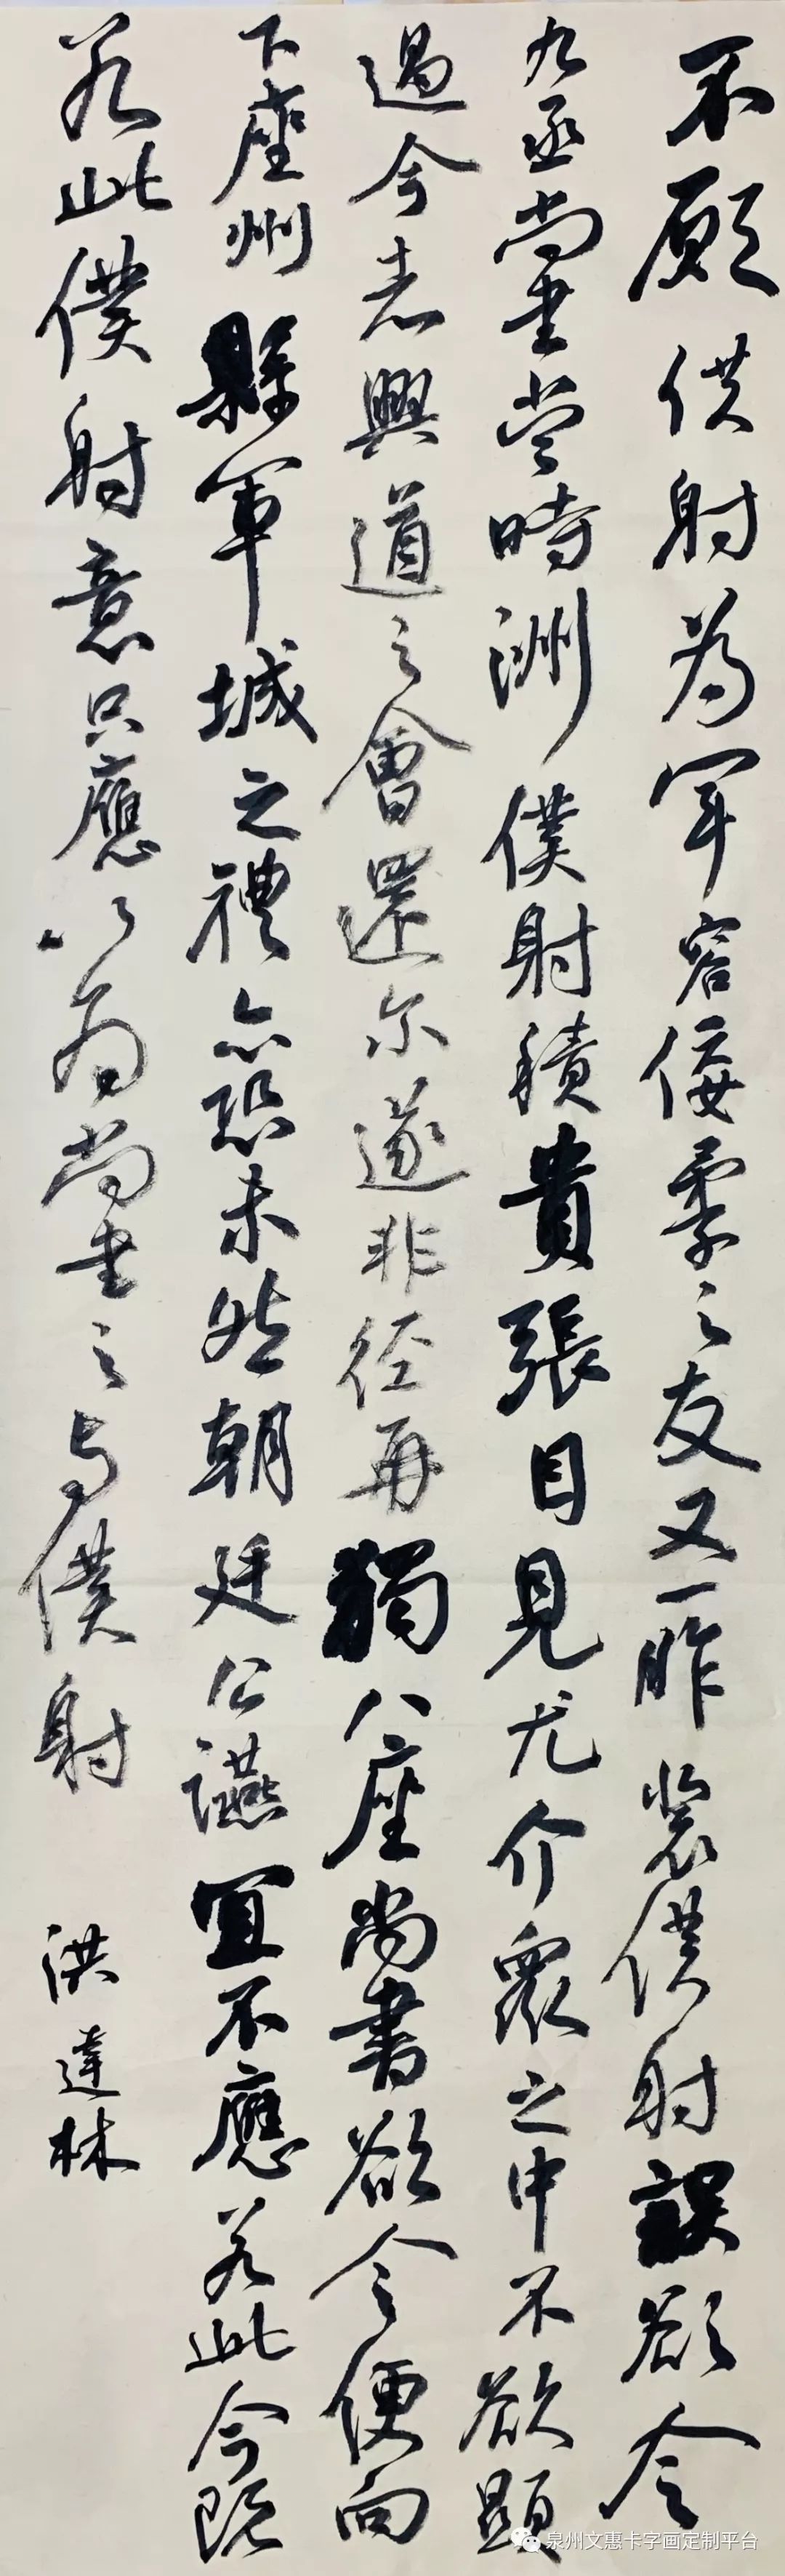 不願僕射為軍容佞柔之友又一昨裴僕射誤欲令
九丞尚書當時洲僕射積貴張目見尤介衆之中不欲顯
過今者興道之會還尔遂非徑再獨八座尚書欲令便向
下座州縣軍城之禮亦恐未然朝廷公讌宜不應若此今既
若此僕射意只應以為尚書之与僕射
洪達林
泉州文惠卡字画定制平台